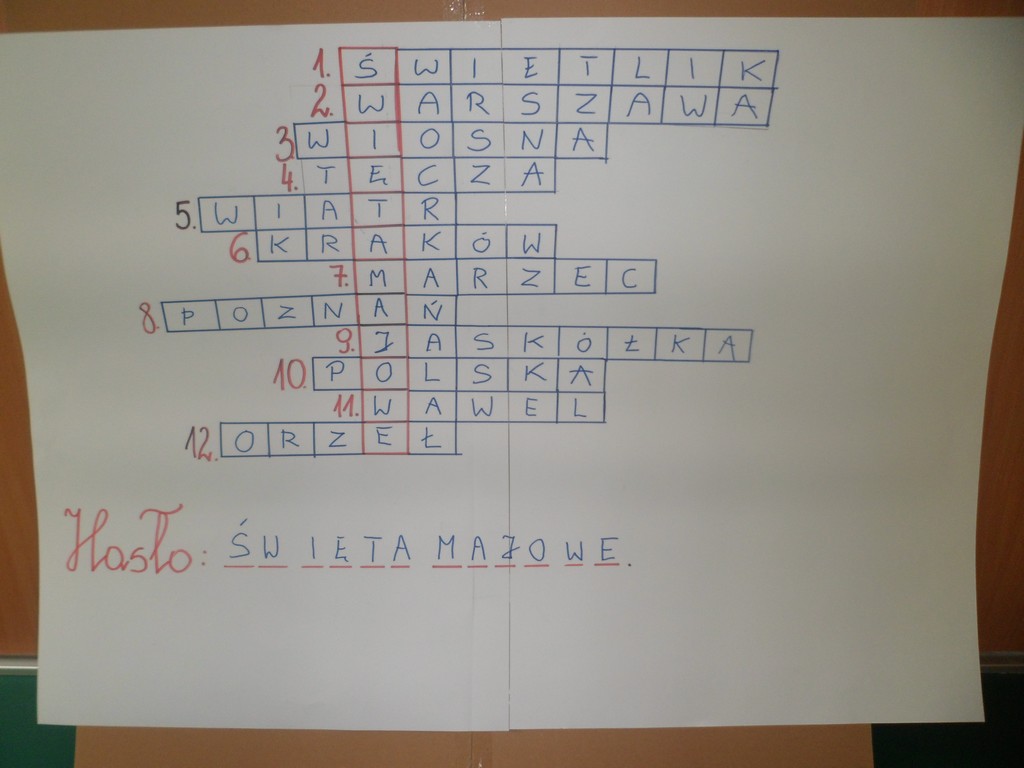 1. ŚWIETLIK
2. WARSZAWA
3. WIOSNA
4. TĘCZA
5. WIATR
6. KRAKÓW
7. MARZEC
8. POZNAŃ
9. JASKÓŁKA
10. POLSKA
11. WAWEL
12. ORZEŁ
Hasło: ŚWIĘTA MAJOWE.